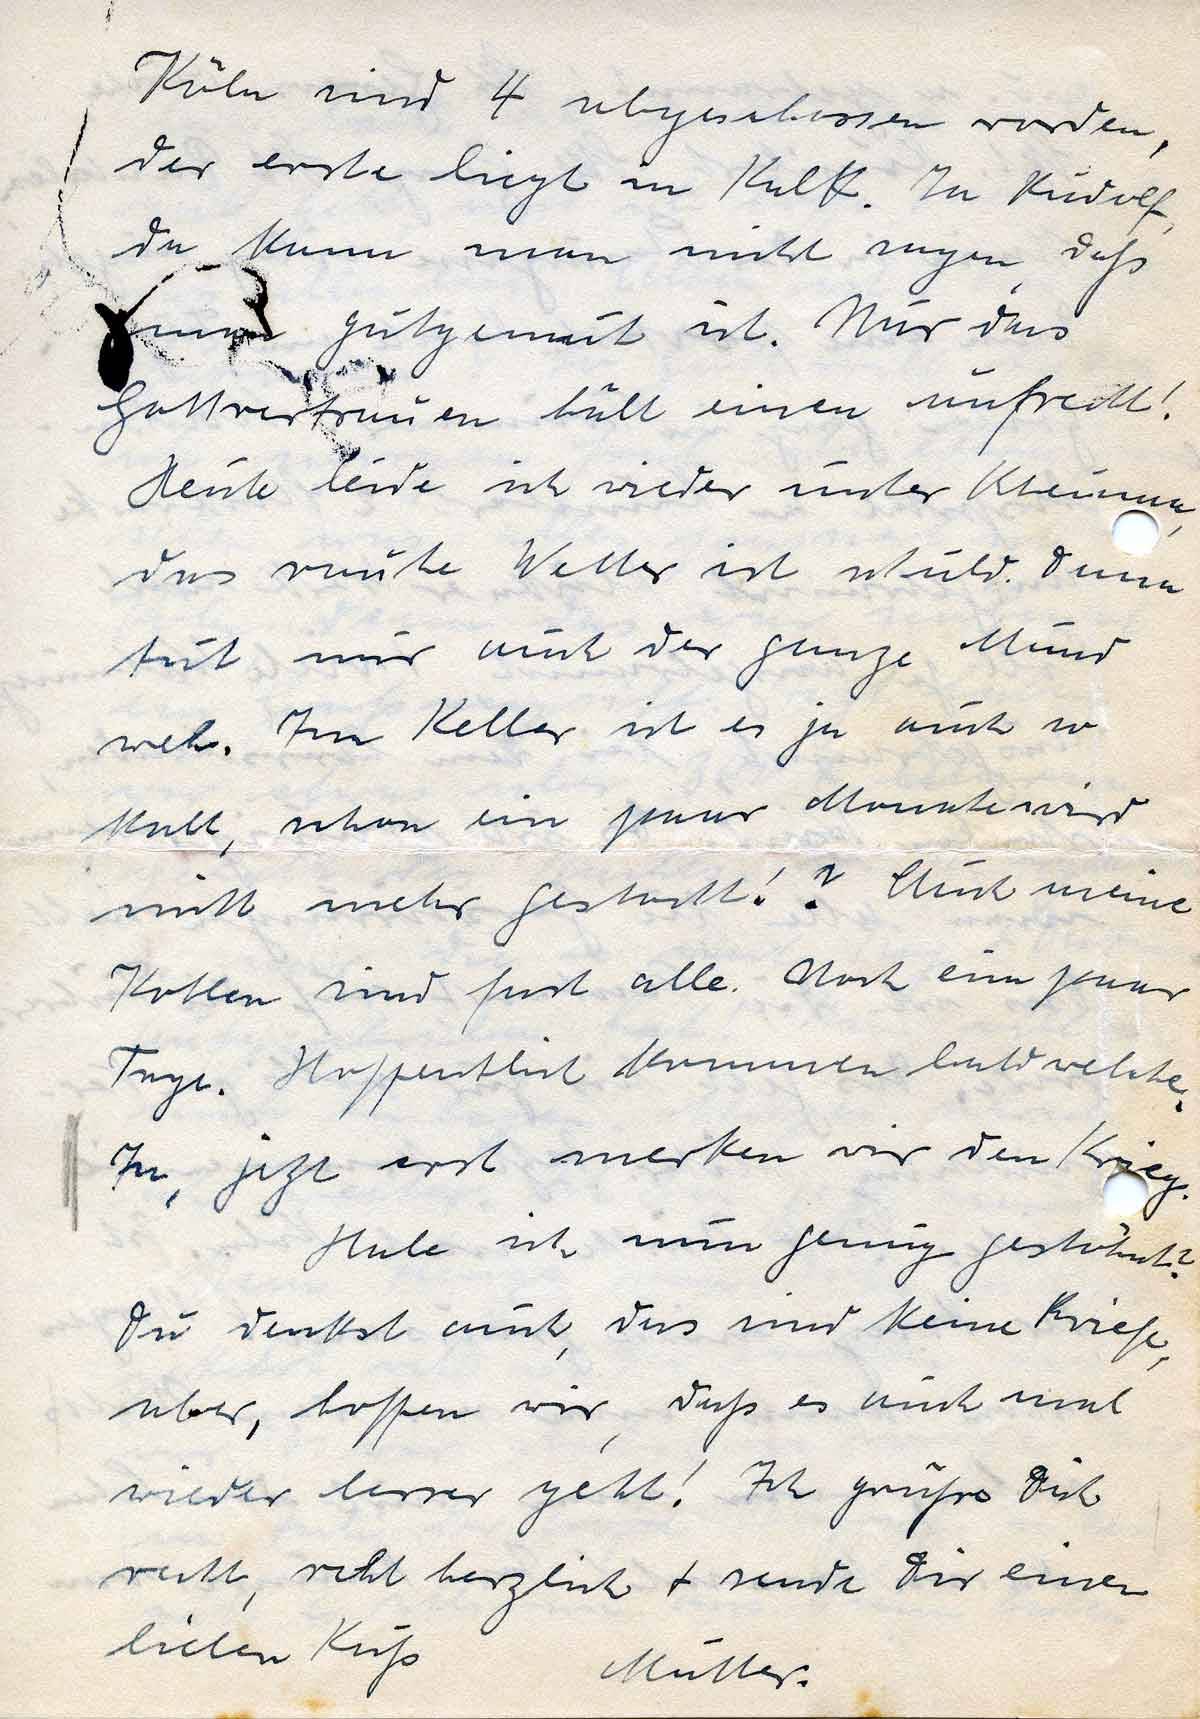 Köln sind 4 abgeschossen worden,
der erste liegt in Kalk. Ja Rudolf,
da kann man nicht sagen, daß
man gutgemut ist. Nur das
Gottvertrauen hält einen aufrecht!
Heute leide ich wieder unter Rheuma,
das rauhe Wetter ist schuld. Dann
tut mir auch der ganze Mund
weh. Im Keller ist es ja auch so
kalt, schon ein paar Monate wird
nicht mehr gestocht!? Auch meine
Kohlen sind fast alle. Noch ein paar
Tage. Hoffentlich kommen bald welche.
Ja, jetzt erst merken wir den Krieg.
Habe ich nun genug gestöhnt?
Du denkst auch, das sind keine Briefe,
aber, hoffen wir, daß es auch mal
wieder besser geht! Ich grüße Dich
recht, recht herzlich + sende Dir einen
lieben Kuß
Mutter.